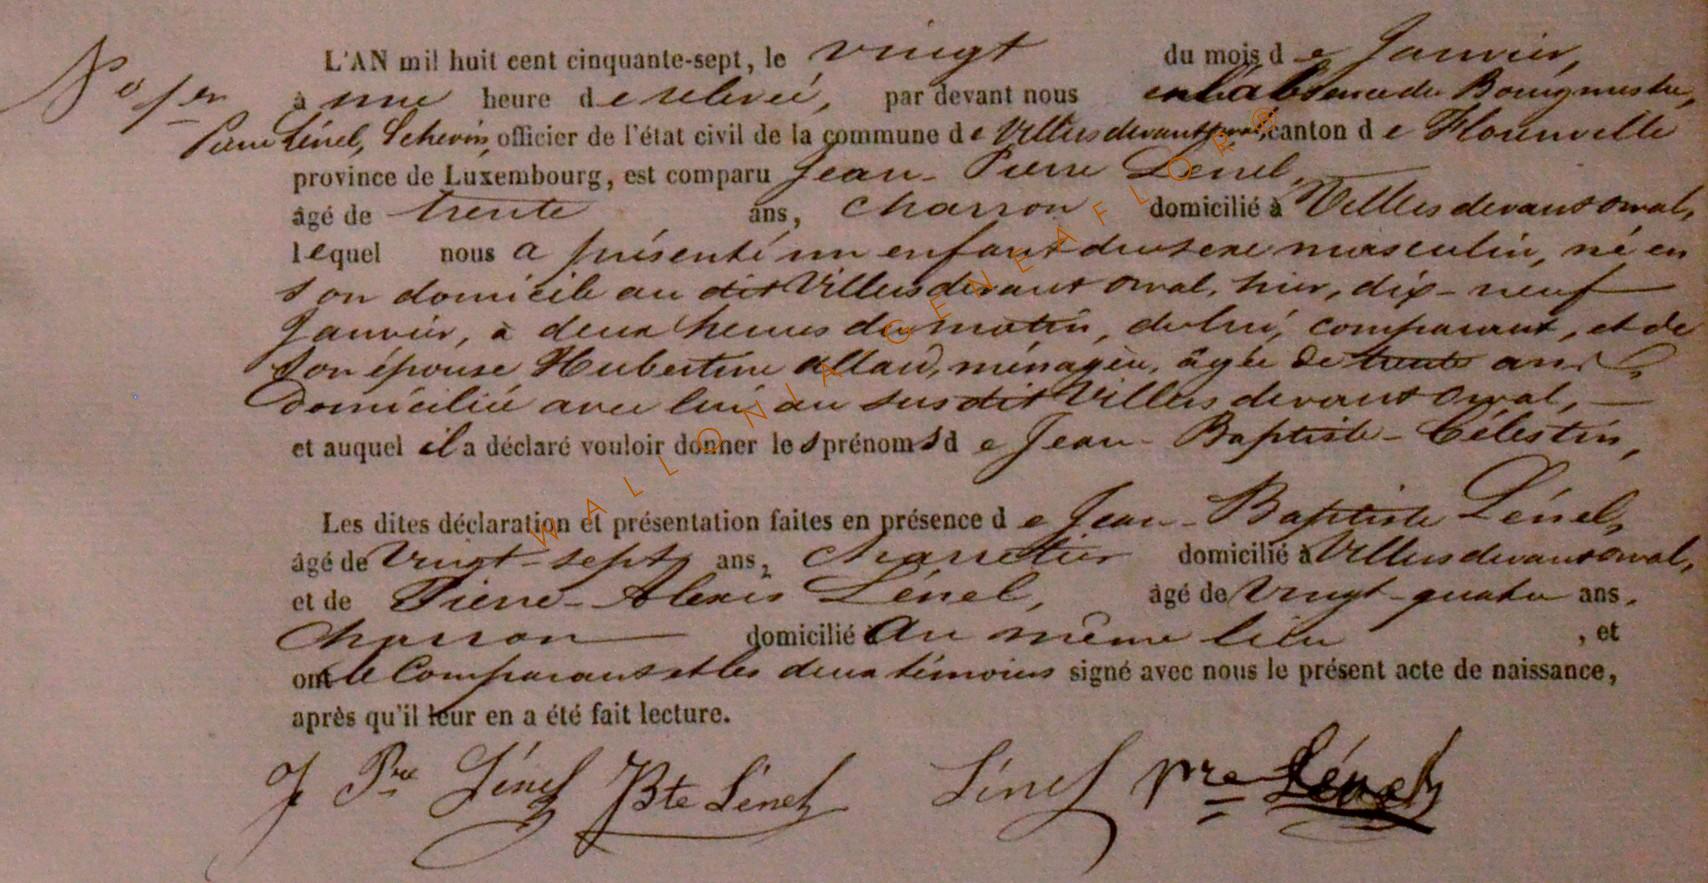 N° 1er
L'AN mil huit cent cinquante-sept, le vingt du mois de Janvier,
à une heure de relevée, par devant nous en l'absence du Bourgmestre,
Pierre Lénel, Echevin, officier de l'état civil de la commune de Villers devant orval, canton de Florenville
province de Luxembourg, est comparu Jean-Pierre Lénel,
âgé de trente ans, charron domicilié à Villers devant orval,
lequel nous a présenté un enfant du sexe masculin, né en
son domicile au dit Villers devant orval, hier, dix-neuf
Janvier, à deux heures du matin, de lui, comparant, et de
son épouse Hubertine allard, ménagère, âgée de trente ans
Domiciliée avec lui au susdit Villers devant orval,
et auquel il a déclaré vouloir donner les prénoms de Jean-Baptiste-Célestin,
Les dites déclaration et présentation faites en présence de Jean-Baptiste Lénel,
âgé de vingt-sept ans, charretier domicilié à Villers devant orval,
et de Pierre-Alexis Lénel, âgé de vingt-quatre ans,
charron domicilié au même lieu, et
ont le Comparant et les deux témoins signé avec nous le présent acte de naissance,
après qu'il leur en a été fait lecture.
J Pre Lénel JBte Lénel Lénel Pre Lénel
WALLONIA GENEAFLORE